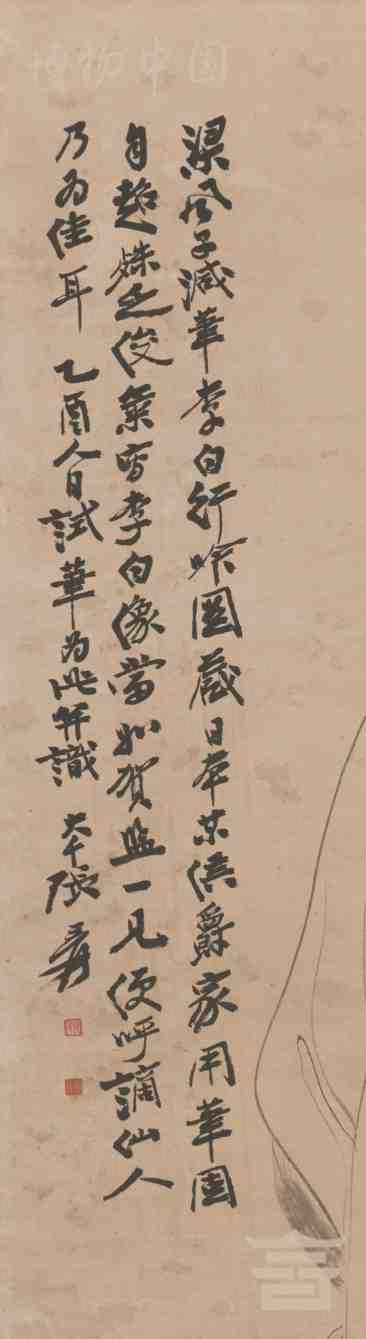 博物中国
梁风子减笔李白行吟图藏日本某侯爵家用笔固
自超妹之俊气写李白像当如贺监一见便呼谪仙人
乃为佳耳 乙酉人日试笔为此并识 大千张爰